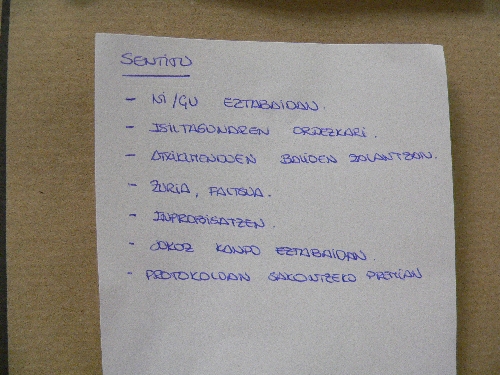 SENTITU
- NI/GU EZTABAIDAN.
- ISILTASUNAREN ORDEZKARI.
- ATXIKIMENDUEN BALIOEN ZALANTZAN.
- ZURIA, FALTSUA.
- INPROBISATZEN.
- JOKOZ KANPO EZTABAIDAN.
- PROTOKOLOAN SAKONTZEKO PREMIAN